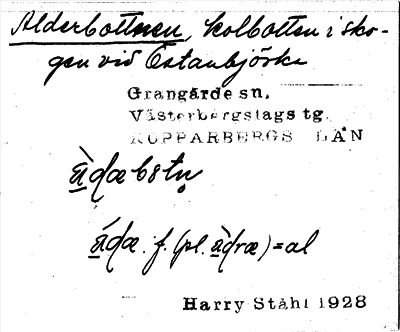 Alderbottnen, kolbotten i sko-
gen vid Östanbjörka
Grangärde sn.
Västerbergslags tg.
KOPPARBERGS LÄN
f. (pl.
) = al
Harry Ståhl 1928